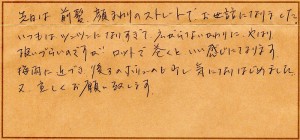 先日は 前髪 顔まわりのストレートで お世話になりました。
いつもは ツンツンになりすぎて 広がらないかわりに、やはり
扱いづらいのですが ロットで 巻くと いい感じになります。
梅雨に近づき 後ろのボリュームも少し 気になりはじめました。
又、宜しくお願い致します。